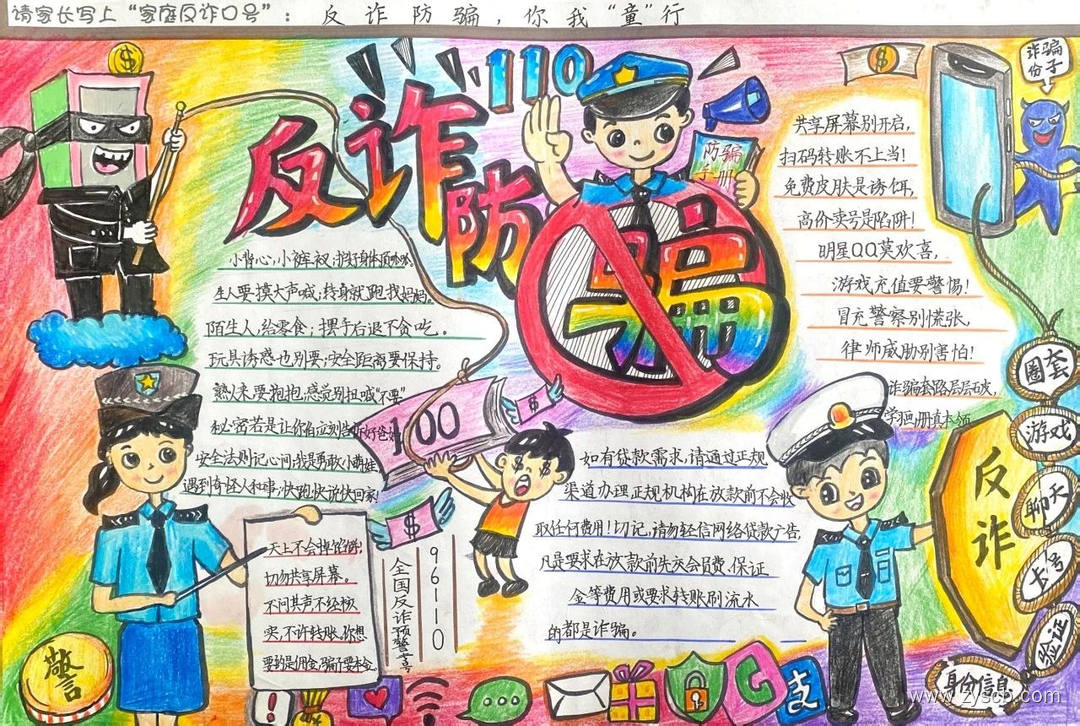 请家长写上“家庭反诈口号”： 反诈防骗，你我“童”行
110
反诈
防骗
防骗
手册
诈骗
份子
共享屏幕别开启，
扫码转账不上当！
免费皮肤是诱饵，
高价卖号是陷阱！
明星QQ莫欢喜，
游戏充值要警惕！
冒充警察别慌张，
律师威胁别害怕！
诈骗套路层层破，
学画册真本领
小背心，小裤衩，
生人要摸大声喊；转身就跑找妈妈。
陌生人，给零食；摆手后退不贪吃。
玩具诱惑也别要，安全距离要保持。
熟人来要抱抱，感觉别扭喊“不要”
秘密若是让你
安全法则记心间；我是勇敢小萌娃
遇到奇怪人和事，快跑快说快回家！
100
如有贷款需求，请通过正规
渠道办理正规机构在放款前不会收
取任何费用！切记，请勿轻信网络贷款广告，
凡是要求在放款前先交会员费、保证
金等费用或要求转账刷流水
的都是诈骗。
天上不会掉馅饼；
切勿共享屏幕。
不问其声不经核
实，不许转账，你想
要的是佣金，骗子要本金
96110
全国反诈预警专号
警言
反诈
圈套
游戏
聊天
卡号
验证
身份信息
支
www.zyscb.com